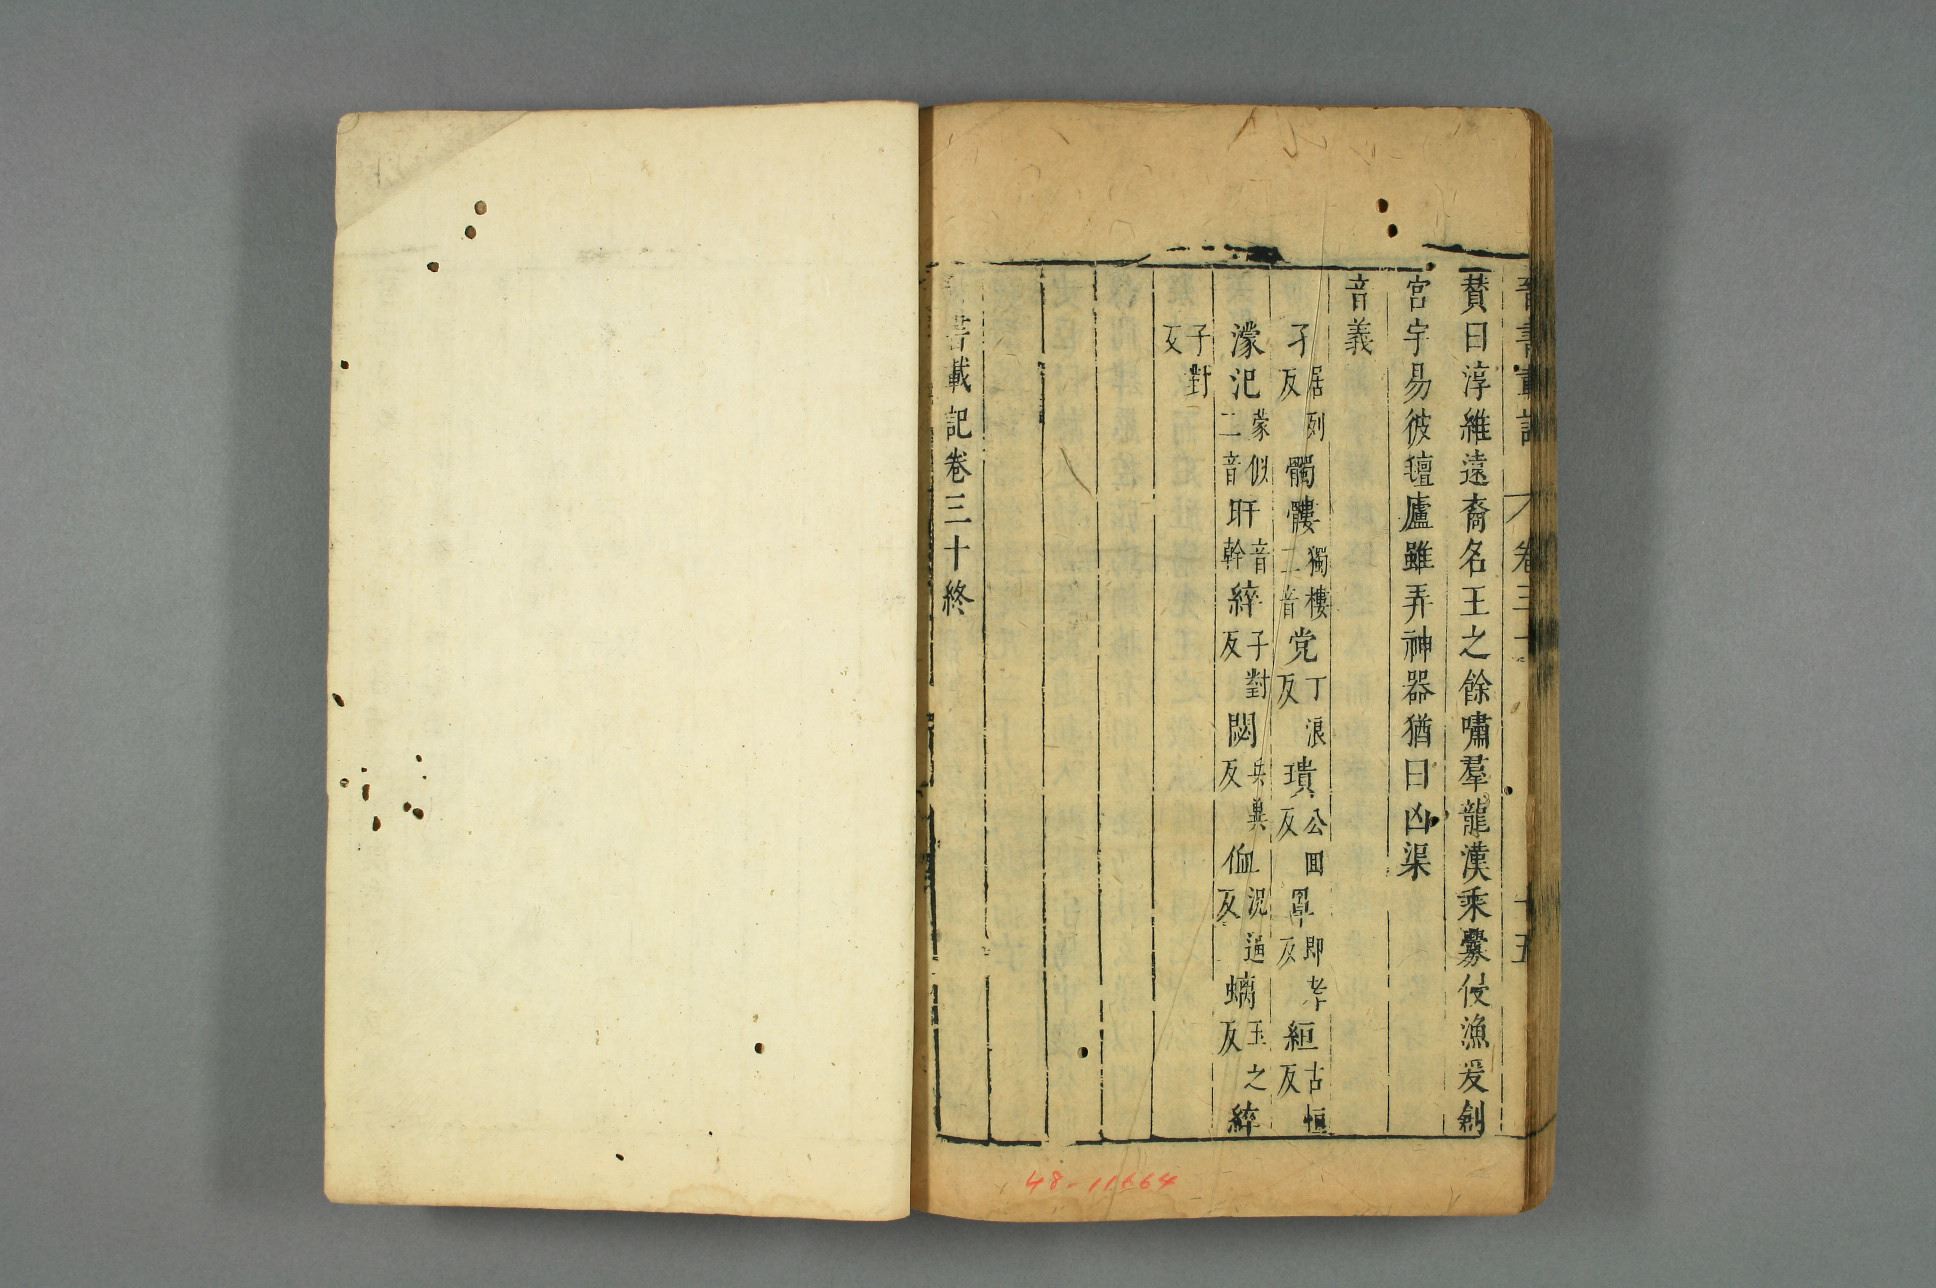 晉書載記 卷三十 十五
賛曰淳維遠裔名王之餘嘯羣龍漢乘釁侵漁爰創
宮宇易彼氊廬雖弄神器猶曰凶渠
音義
孑居列反髑髏獨樓二音党丁浪反璝公回反罩即孝反絙古恒反
濛汜蒙似二音旰音幹綷子對反閟兵兾反侐況逼反螭玉之反綷
子對反
晉書載記卷三十終
48-11664